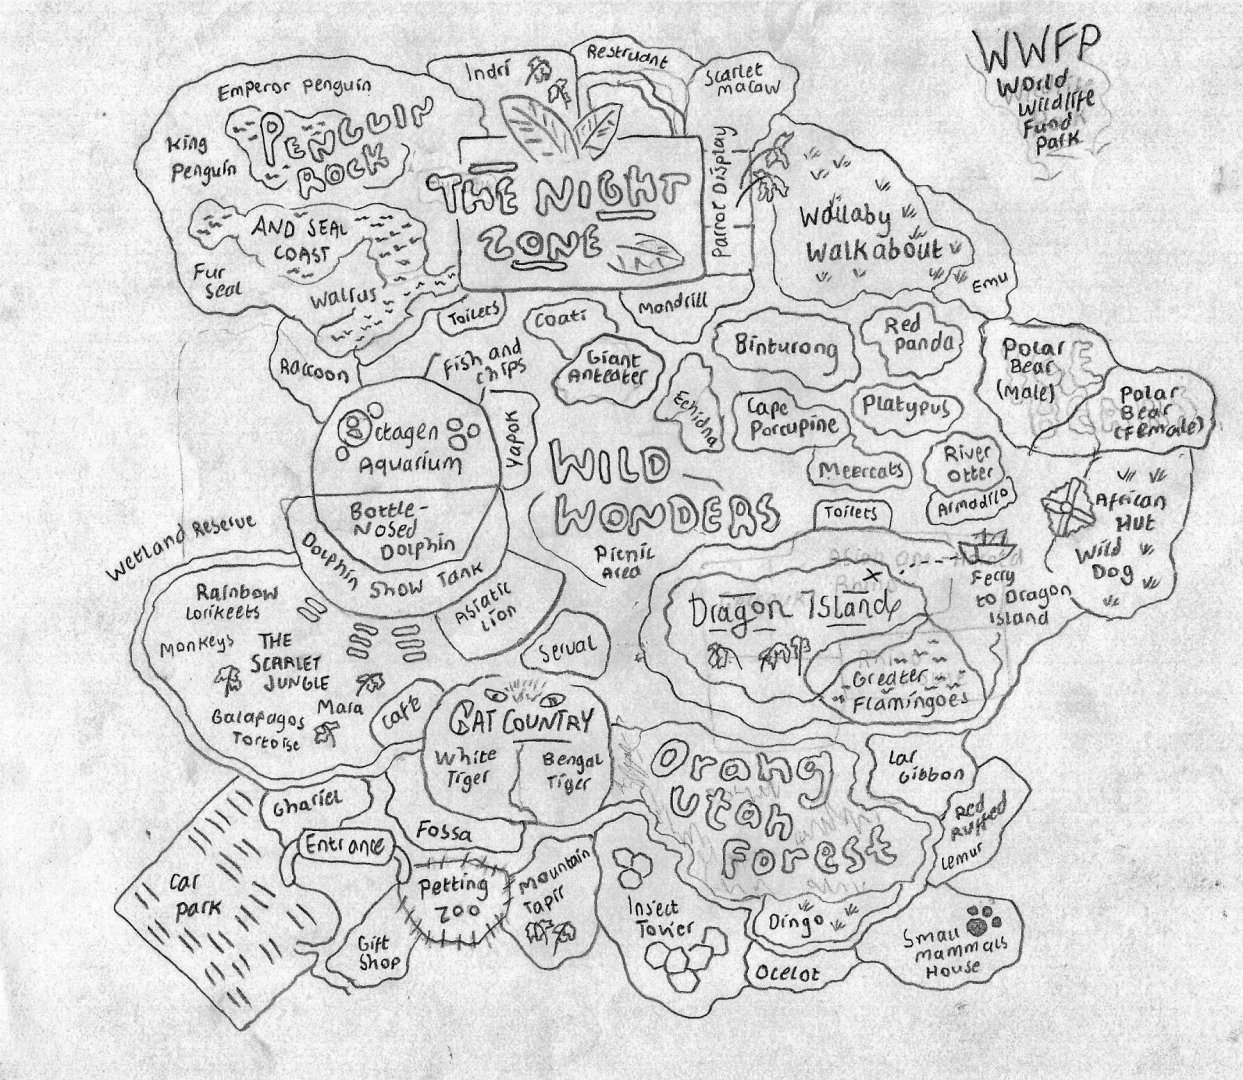 WWFP
World
Wildlife
Fund
Park
Emperor Penguin
King
Penguin
PENGUIN
ROCK
AND SEAL
COAST
Fur
Seal
Walrus
Indri
Restruant
Scarlet
macaw
THE NIGHT
ZONE
Parrot Display
Wallaby
Walkabout
Emu
Toilets
Coati
Mandrill
Raccoon
Fish and
chips
Giant
Anteater
Echidna
Binturong
Red
panda
Polar
Bear
(Male)
Polar
Bear
(Female)
Octagen
Aquarium
Yapok
Cape
Porcupine
Platypus
WILD
WONDERS
Picnic
Area
Meercats
River
Otter
Armadilo
Toilets
African
Hut
Wild
Dog
Bottle-
Nosed
Dolphin
Dolphin Show Tank
Wetland Reserve
Asiatic
Lion
Serval
Rainbow
Lorikeets
Monkeys
THE
SCARLET
JUNGLE
Mara
Galapagos
Tortoise
Café
Dragon Island
Ferry
to Dragon
Island
Greater
Flamingoes
CAT COUNTRY
White
Tiger
Bengal
Tiger
Orang
Utan
Forest
Lar
Gibbon
Red
Ruffed
Lemur
Ghariel
Fossa
Entrance
Car
park
Petting
Zoo
Mountain
Tapir
Gift
Shop
Insect
Tower
Dingo
Ocelot
Small
Mammals
House